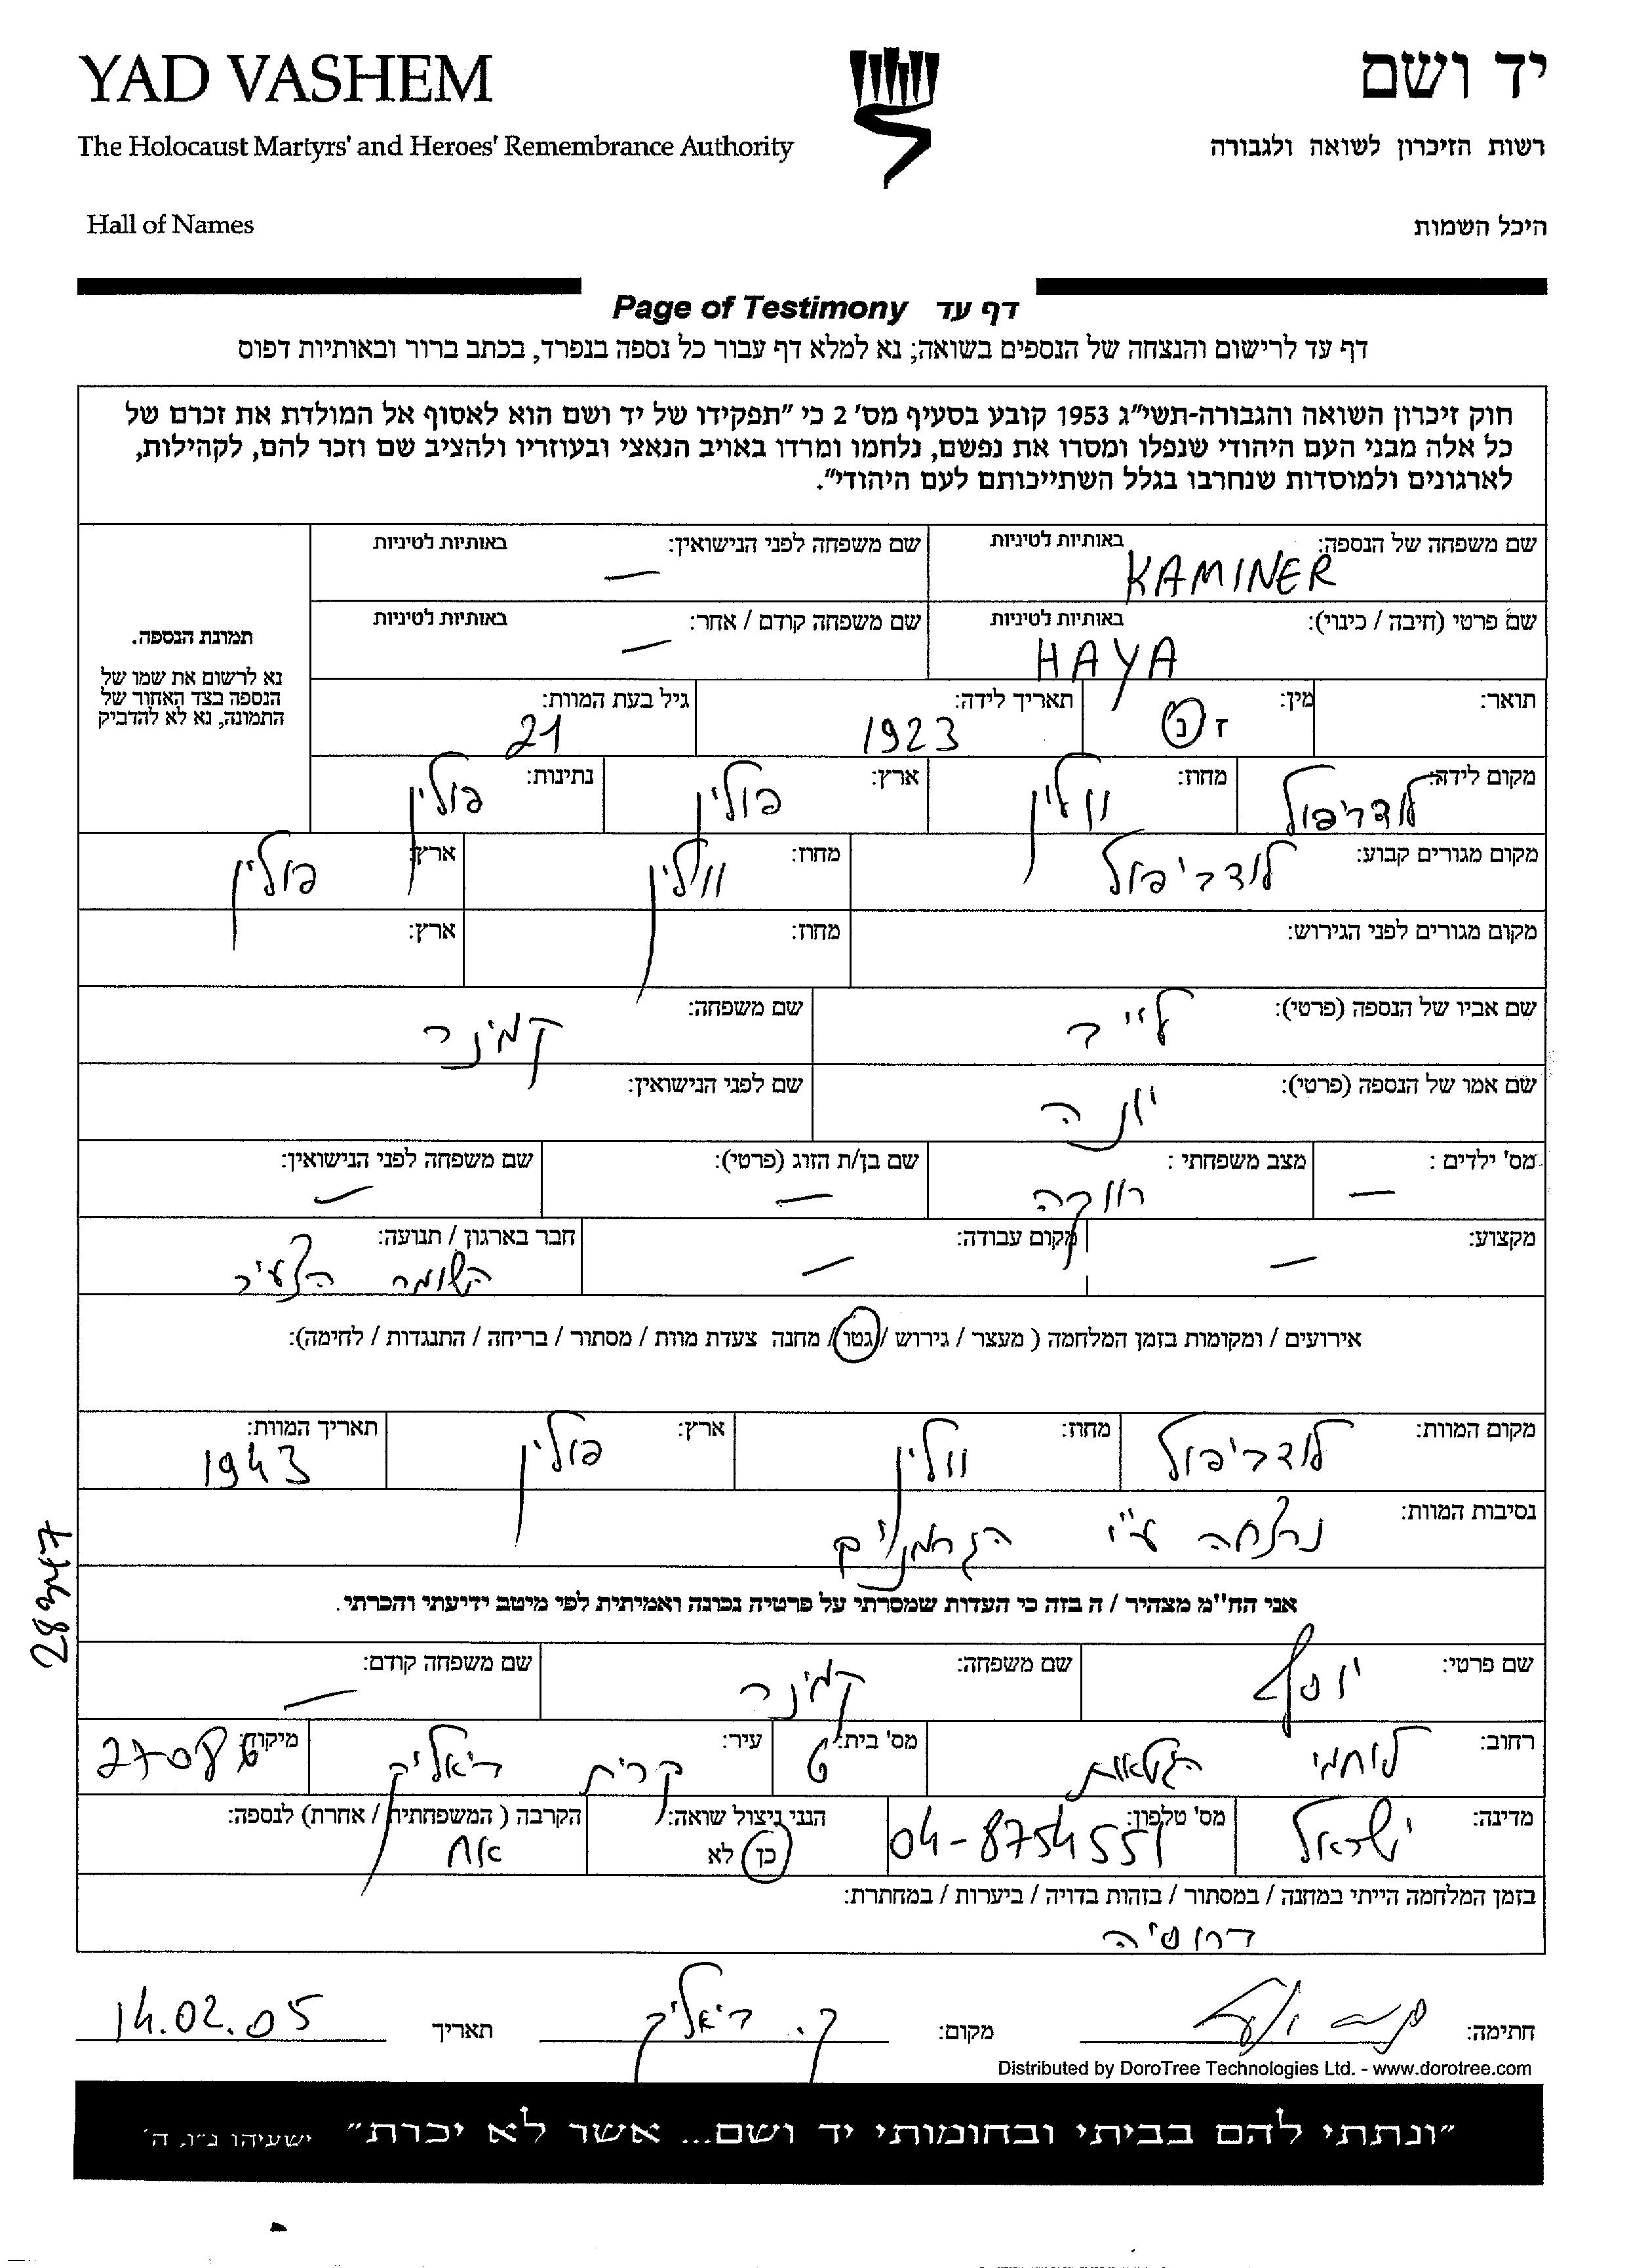 YAD VASHEM
יד ושם
The Holocaust Martyrs' and Heroes' Remembrance Authority
רשות הזיכרון לשואה ולגבורה
Hall of Names
היכל השמות
Page of Testimony דף עד
דף עד לרישום והנצחה של הנספים בשואה; נא למלא דף עבור כל נספה בנפרד, בכתב ברור ובאותיות דפוס
חוק זיכרון השואה והגבורה-תשי"ג 1953 קובע בסעיף מס' 2 כי "תפקידו של יד ושם הוא לאסוף אל המולדת את זכרם של
כל אלה מבני העם היהודי שנפלו ומסרו את נפשם, נלחמו ומרדו באויב הנאצי ובעוזריו ולהציב שם וזכר להם, לקהילות,
לארגונים ולמוסדות שנחרבו בגלל השתייכותם לעם היהודי".
שם משפחה של הנספה: באותיות לטיניות KAMINER
שם משפחה לפני הנישואין: באותיות לטיניות —
שם פרטי (חיבה / כינוי): באותיות לטיניות HAYA
שם משפחה קודם / אחר: באותיות לטיניות —
תמונת הנספה.
נא לרשום את שמו של
הנספה בצד האחור של
התמונה, נא לא להדביק
תואר: מין: ז נ תאריך לידה: 1923 גיל בעת המוות: 21
מקום לידה: לודביפול מחוז: ווולין ארץ: פולין נתינות: פולין
מקום מגורים קבוע: לודביפול מחוז: וולין ארץ: פולין
מקום מגורים לפני הגירוש: מחוז: ארץ:
שם אביו של הנספה (פרטי): לייב שם משפחה: קמינר
שם אמו של הנספה (פרטי): יונה שם לפני הנישואין:
מס' ילדים : — מצב משפחתי : רווקה שם בן/ת הזוג (פרטי): — שם משפחה לפני הנישואין: —
מקצוע: — מקום עבודה: — חבר בארגון / תנועה: השומר הצעיר
אירועים / ומקומות בזמן המלחמה ( מעצר / גירוש / גטו / מחנה צעדת מוות / מסתור / בריחה / התנגדות / לחימה):
מקום המוות: לודביפול מחוז: ווולין ארץ: פולין תאריך המוות: 1943
נסיבות המוות: נרצחה ע"י הגרמנים
אני הח"מ מצהיר / ה בזה כי העדות שמסרתי על פרטיה נכונה ואמיתית לפי מיטב ידיעתי והכרתי.
שם פרטי: יוסף שם משפחה: קמינר שם משפחה קודם: —
רחוב: לוחמי הגטאות מס' בית: 6 עיר: קרית ביאליק מיקוד: 27086
מדינה: ישראל מס' טלפון: 04-8754551 הנני ניצול שואה: כן לא הקרבה ( המשפחתית / אחרת) לנספה: אח
בזמן המלחמה הייתי במחנה / במסתור / בזהות בדויה / ביערות / במחתרת:
ברוסיה
חתימה: מקום: ק. ביאליק תאריך 14.02.05
Distributed by DoroTree Technologies Ltd. - www.dorotree.com
"ונתתי להם בביתי ובחומותי יד ושם... אשר לא יכרת" ישעיהו נ"ו, ה'